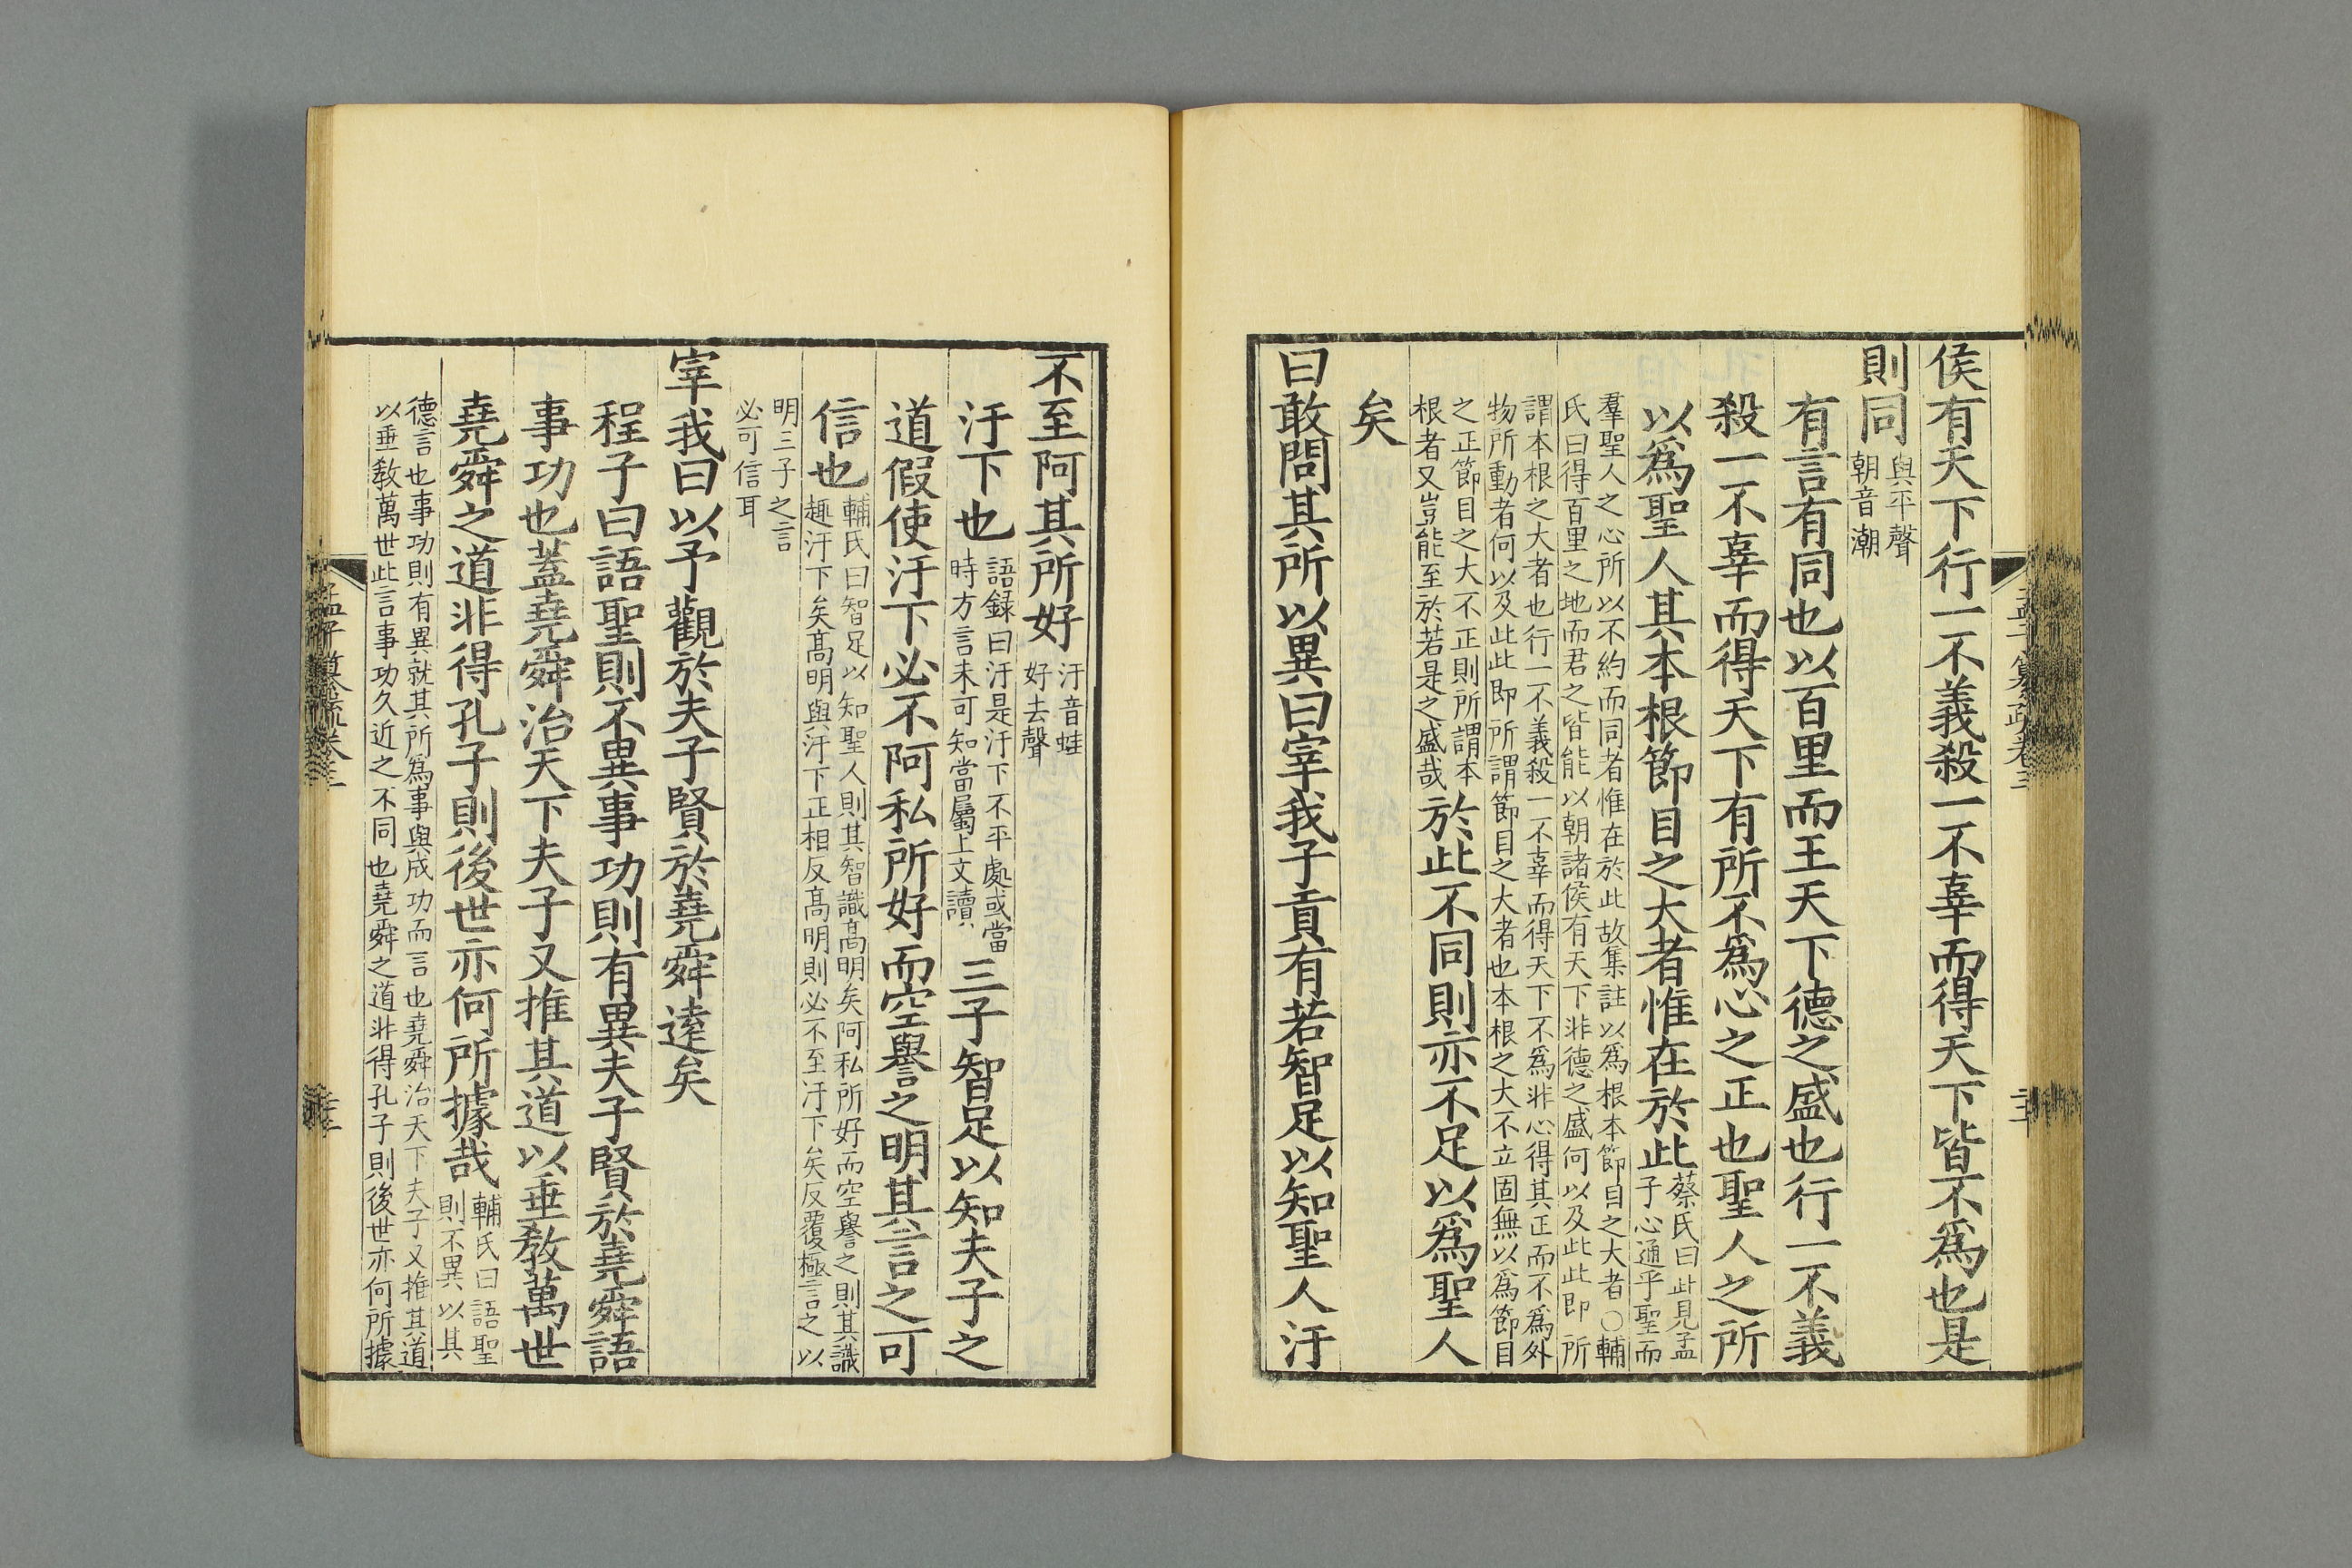 侯有天下行一不義殺一不辜而得天下皆不爲也是
則同與平聲朝音潮
有言有同也以百里而王天下德之盛也行一不義
殺一不辜而得天下有所不爲心之正也聖人之所
以爲聖人其本根節目之大者惟在於此蔡氏曰此見孟子心通乎聖而
羣聖人之心所以不約而同者惟在於此故集註以爲根本節目之大者○輔
氏曰得百里之地而君之皆能以朝諸侯有天下非德之盛何以及此此即所
謂本根之大者也行一不義殺一不辜而得天下不爲非心得其正而不爲外
物所動者何以及此此即所謂節目之大者也本根之大不立固無以爲節目
之正節目之大不正則所謂本根者又豈能至於若是之盛哉於此不同則亦不足以爲聖人
矣
曰敢問其所以異曰宰我子貢有若智足以知聖人汙
不至阿其所好汙音蛙好去聲
汙下也語録曰汙是汙下不平處或當時方言未可知當屬上文讀三子智足以知夫子之
道假使汙下必不阿私所好而空譽之明其言之可
信也輔氏曰智足以知聖人則其智識高明矣阿私所好而空譽之則其識趣汙下矣高明與汙下正相反高明則必不至汙下矣反覆極言之以
明三子之言必可信耳
宰我曰以予觀於夫子賢於堯舜遠矣
程子曰語聖則不異事功則有異夫子賢於堯舜語
事功也蓋堯舜治天下夫子又推其道以垂教萬世
堯舜之道非得孔子則後世亦何所據哉輔氏曰語聖則不異以其
德言也事功則有異就其所爲事與成功而言也堯舜治天下夫子又推其道
以垂教萬世此言事功久近之不同也堯舜之道非得孔子則後世亦何所據
孟子纂疏卷三